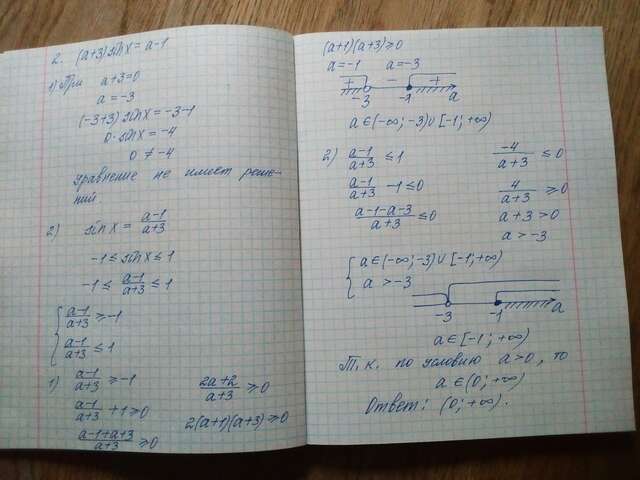 2. (a+3) sin x = a-1
1) При a+3=0
a=-3
(-3+3) sin x = -3-1
0·sin x = -4
0 ≠ -4
уравнение не имеет реше-
ний.
2) sin x = (a-1)/(a+3)
-1 ≤ sin x ≤ 1
-1 ≤ (a-1)/(a+3) ≤ 1
{ (a-1)/(a+3) ≥ -1
(a-1)/(a+3) ≤ 1
1) (a-1)/(a+3) ≥ -1
(a-1)/(a+3) + 1 ≥ 0
(a-1+a+3)/(a+3) ≥ 0
(2a+2)/(a+3) ≥ 0
2(a+1)(a+3) ≥ 0
(a+1)(a+3) ≥ 0
a=-1 a=-3
+ - +
-3 -1 a
a∈(-∞;-3)∪[-1;+∞)
2) (a-1)/(a+3) ≤ 1
(a-1)/(a+3) - 1 ≤ 0
(a-1-a-3)/(a+3) ≤ 0
-4/(a+3) ≤ 0
4/(a+3) ≥ 0
a+3 > 0
a > -3
{ a∈(-∞;-3)∪[-1;+∞)
a > -3
-3 -1 a
a∈[-1;+∞)
Т.к. по условию a>0, то
a∈(0;+∞)
Ответ: (0;+∞).